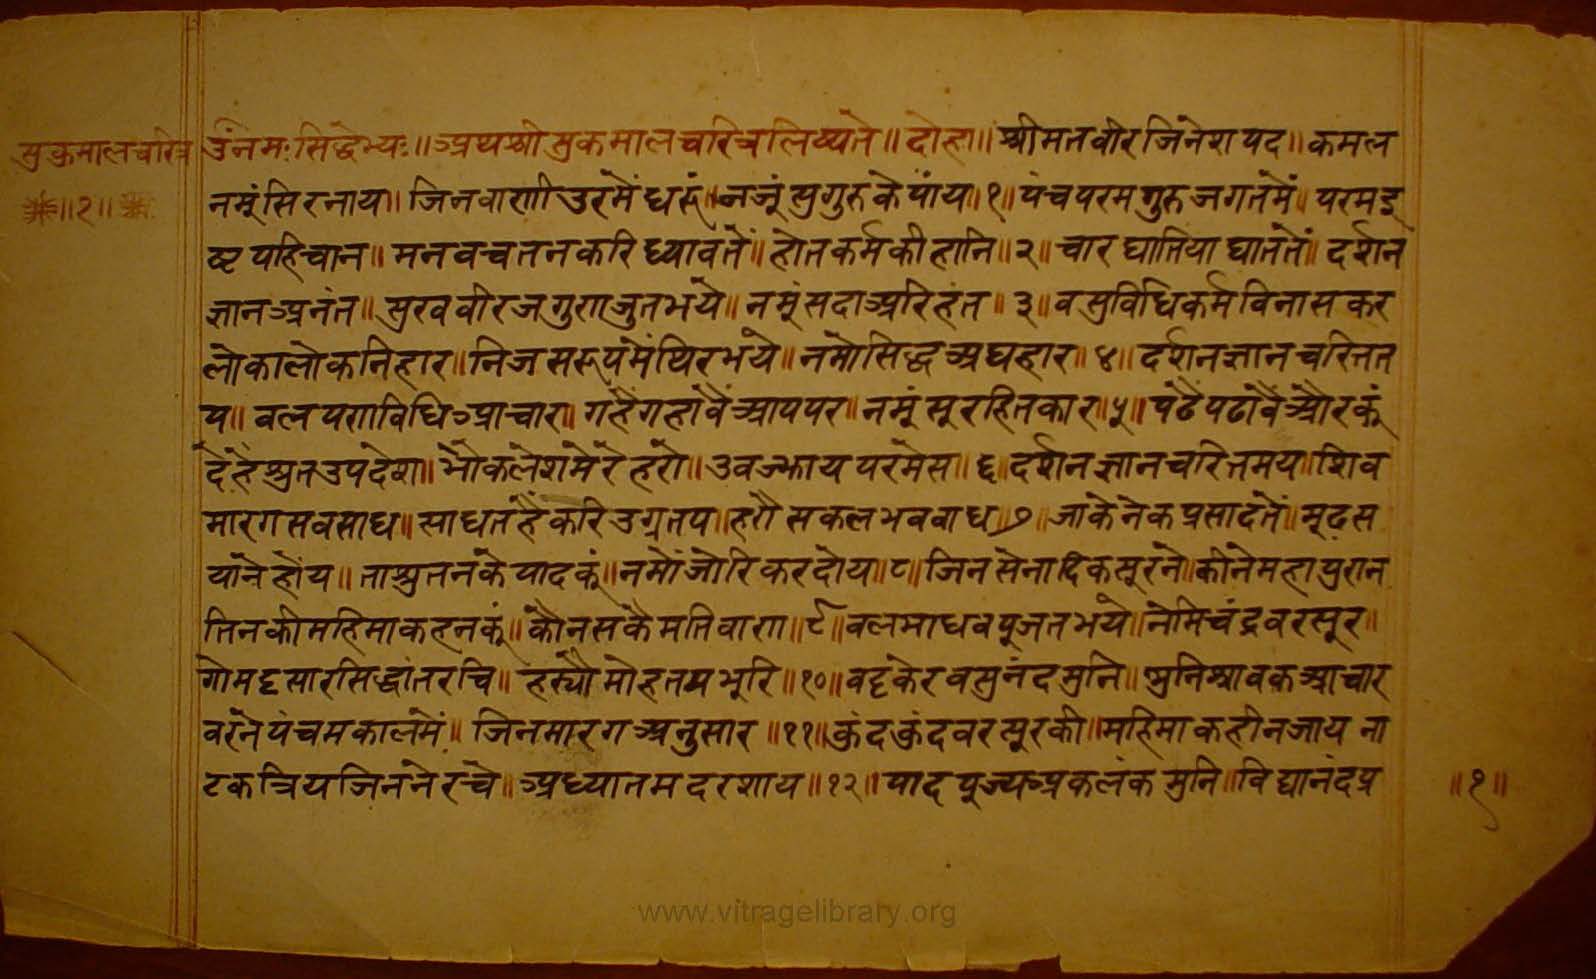 सुकुमालचरित्र
॥१॥
उंनमःसिद्धेभ्यः॥अथश्रीसुकमालचरित्रलिष्यते॥दोहा॥श्रीमतवीरजिनेशपद॥कमल
नमूंसिरनाय॥जिनवाणीउरमेंधरूं॥नजूंसुगुरुकेपांय॥१॥पंचपरमगुरुजगतमें॥परमइ
ष्टपहिचान॥मनवचतनकरिध्यावतें॥होतकर्मकीहानि॥२॥चारघातियाघाततें॥दर्शन
ज्ञानअनंत॥सुरववीरजगुणजुतभये॥नमूंसदाअरिहंत॥३॥वसुविधिकर्मविनासकर
लोकालोकनिहार॥निजसरूपमेंथिरभये॥नमोसिद्धअघहार॥४॥दर्शनज्ञानचरित्तत
प॥वलपणविधिआचार॥गहैंगहावैंआपपर॥नमूंसूरहितकार॥५॥पढैंपढावैंऔरकूं
देहैंश्रुतउपदेश॥भौकलेशमेरैहरौ॥उवज्झायपरमेस॥६॥दर्शनज्ञानचरित्तमय॥शिव
मारगसवसाध॥साधतहैंकरिउग्रतप॥हरौसकलभववाध॥७॥जाकेनेकप्रसादतें॥मूढस
यानेहोंय॥ताश्रुतनकेपादकूं॥नमोंजोरिकरदोय॥८॥जिनसेनादिकसूरने॥कीनेमहापुरान
तिनकीमहिमाकहनकूं॥कौनसकैमतिवाण॥९॥वलमाधवपूजतभये॥नेमिचंद्रवरसूर॥
गोमट्टसारसिद्धांतरचि॥हस्यौमोहतमभूरि॥१०॥वट्टकेरवसुनंदमुनि॥मुनिश्रावकआचार
वरनेपंचमकालमें॥जिनमारगअनुसार॥११॥कुंदकुंदवरसूरकी॥महिमाकहीनजायना
टकत्रियजिननेरचे॥अध्यातमदरशाय॥१२॥पादपूज्यअकलंकमुनि॥विद्यानंदप्र
॥१॥
www.vitragelibrary.org